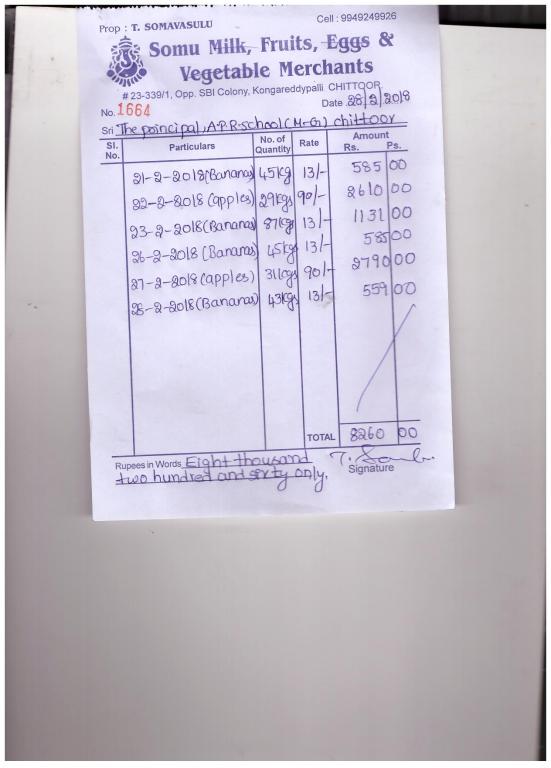 Prop : T. SOMAVASULU Cell : 9949249926
Somu Milk, Fruits, Eggs &
Vegetable Merchants
# 23-339/1, Opp. SBI Colony, Kongareddypalli CHITTOOR
No. 1664 Date 28/2/2018
Sri The principal, A.P.R-school (M-G) chittoor
Sl. No. Particulars No. of Quantity Rate Amount Rs. Ps.
21-2-2018 (Bananas) 45kg 13/- 585 00
22-2-2018 (apples) 29kgs 90/- 2610 00
23-2-2018 (Bananas) 87kgs 13/- 1131 00
26-2-2018 (Bananas) 45kgs 13/- 585 00
27-2-2018 (apples) 31kgs 90/- 2790 00
28-2-2018 (Bananas) 43kgs 13/- 559 00
TOTAL 8260 00
Rupees in Words Eight thousand
two hundred and sixty only.
Signature